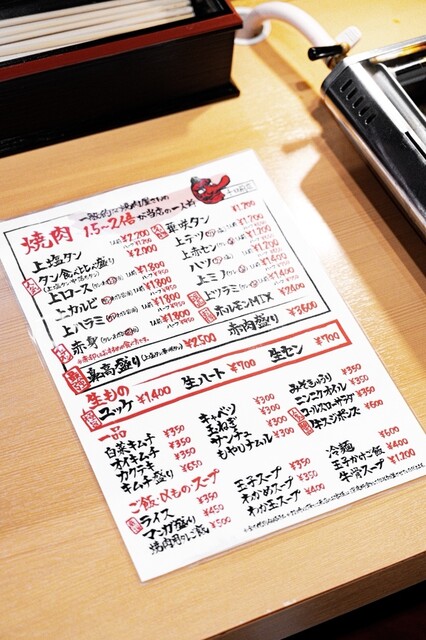 一般的な焼肉屋さんの
1.5〜2倍が当店の一人前
焼肉
上塩タン ¥2,200
タン食べくらべ盛り ¥2,000
上ロース ¥1,800
上カルビ ¥1,800
上ハラミ ¥1,800
赤身 ¥1,800
最高盛り ¥2500
¥1,200
上テツ ¥1,700
上赤セン ¥1,200
ハツ ¥1,200
上ミノ ¥1,400
上ツラミ ¥1,400
ホルモンMIX ¥2400
赤肉盛り ¥3600
生もの
ユッケ ¥1,400
生ハート ¥700
生セン ¥700
一品
白菜キムチ ¥350
オイキムチ ¥350
カクテキ ¥350
キムチ盛り ¥650
キャベツ ¥300
玉ねぎ ¥300
サンチュ ¥300
もやしナムル ¥300
みそきゅうり ¥350
ニンニクオイル ¥350
コールスローサラダ ¥350
牛スジポンズ ¥600
ご飯・〆もの スープ
ライス ¥350
マンガ盛り ¥450
焼肉用のご飯 ¥500
玉子スープ ¥350
わかめスープ ¥350
わか玉スープ ¥400
冷麺 ¥600
玉子かけご飯 ¥400
牛骨スープ ¥1,200